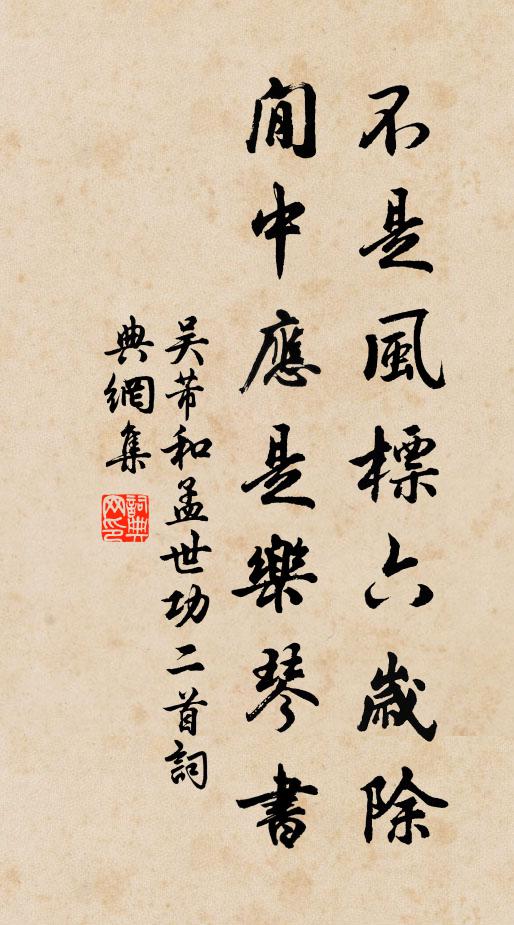 不是風標六歲除
閒中應是樂琴書
吴芾和孟世功二首詞
典網集
詞典網印